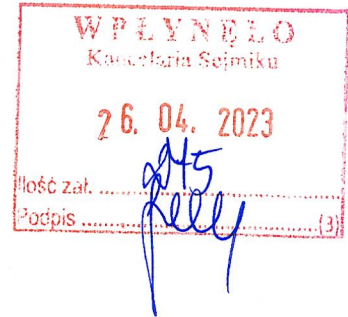 WPŁYNĘŁO
Kancelaria Sejmiku
26. 04. 2023
Ilość zał. ....................
Podpis ........................(3)